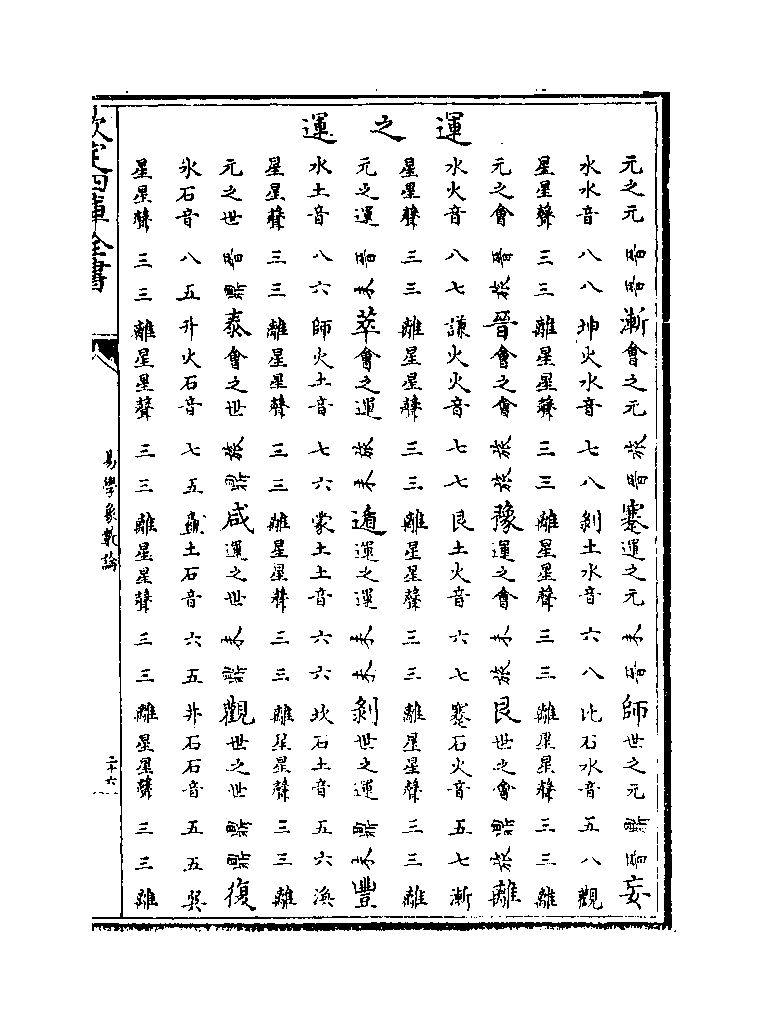 運之運
元之元漸會之元蹇運之元未師世之元妄
水水音八八坤火水音七八剝土水音六八比石水音五八觀
星星聲三三離星星聲三三離星星聲三三離星星聲三三離
元之會晉會之會豫運之會未艮世之會離
水火音八七謙火火音七七艮土火音六七蹇石火音五七漸
星星聲三三離星星聲三三離星星聲三三離星星聲三三離
元之運未萃會之運未遁運之運未未剝世之運未豐
水土音八六師火土音七六蒙土土音六六坎石土音五六渙
星星聲三三離星星聲三三離星星聲三三離星星聲三三離
元之世泰會之世咸運之世未觀世之世復
水石音八五升火石音七五蠱土石音六五井石石音五五巽
星星聲三三離星星聲三三離星星聲三三離星星聲三三離
欽定四庫全書
易學象數論
二十六